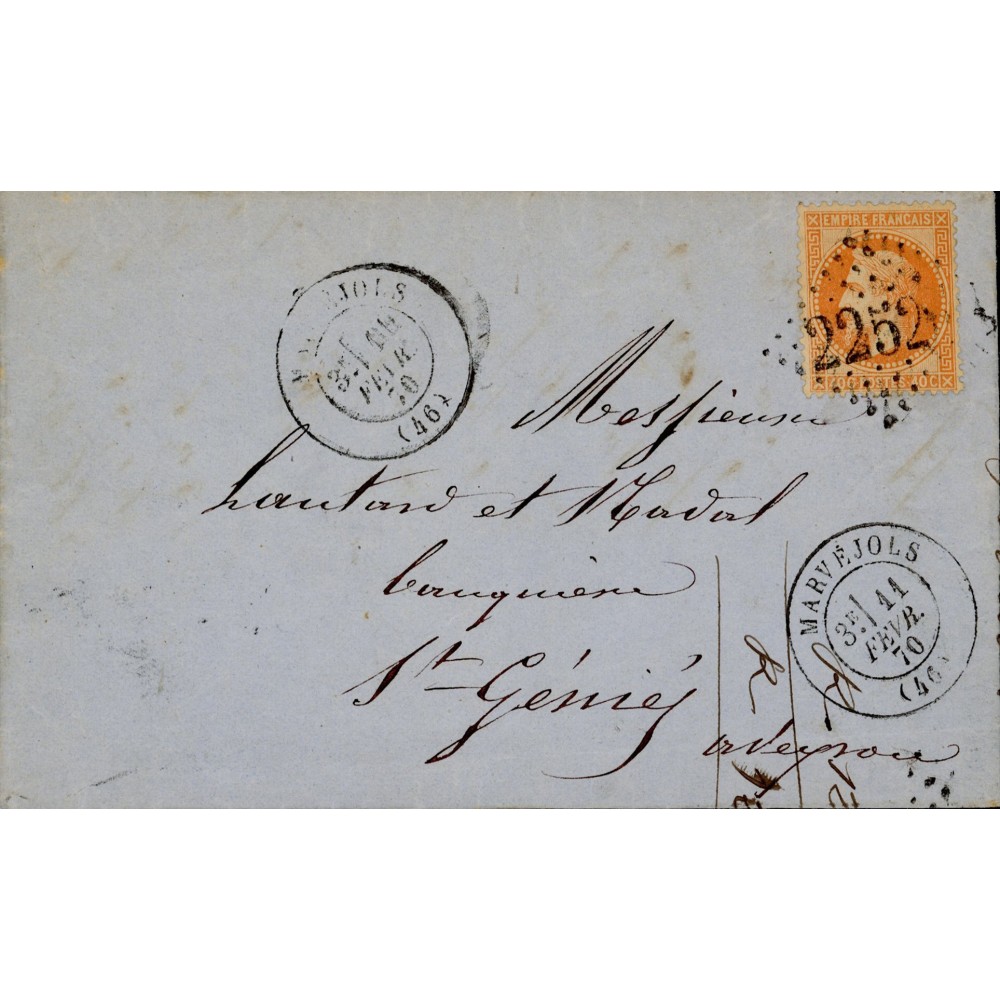 EMPIRE FRANÇAIS
2252
40C POSTES 40C
MARVÉJOLS
3E/ 11
FEVR.
70
(46)
Messieurs
Lautard et Nadal
banquiers
St Géniés
aveyron
MARVÉJOLS
3E/ 11
FEVR.
70
(46)